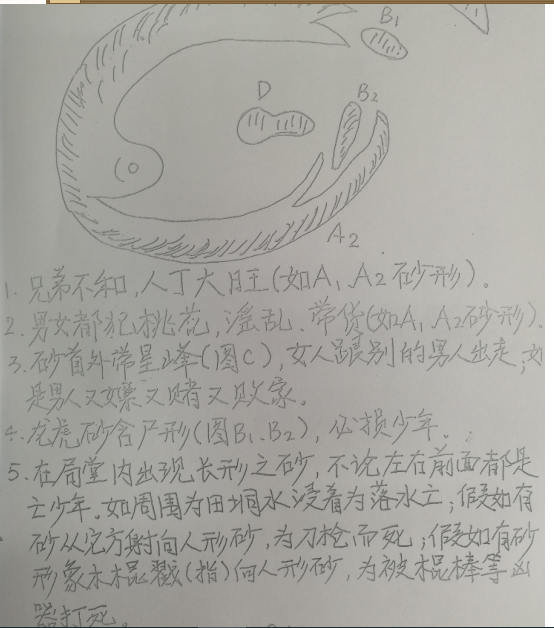 B1
D
B2
A2
1. 兄弟不和,人丁大旺(如A1、A2砂形)。
2. 男女都犯桃花,淫乱、带货(如A1、A2砂形)。
3. 砂首外带呈山峰(图C),女人跟别的男人出走;如
是男人又嫖又赌又败家。
4. 龙虎砂含尸形(图B1、B2),必损少年。
5. 在局堂内出现长形之砂,不论左右前面都是
亡少年。如周围为田、湖水浸着为落水亡;假如有
砂从它方射向人形砂,为刀枪而死;假如有砂
形象木棍戳(指)向人形砂,为被棍棒等凶
器打死。